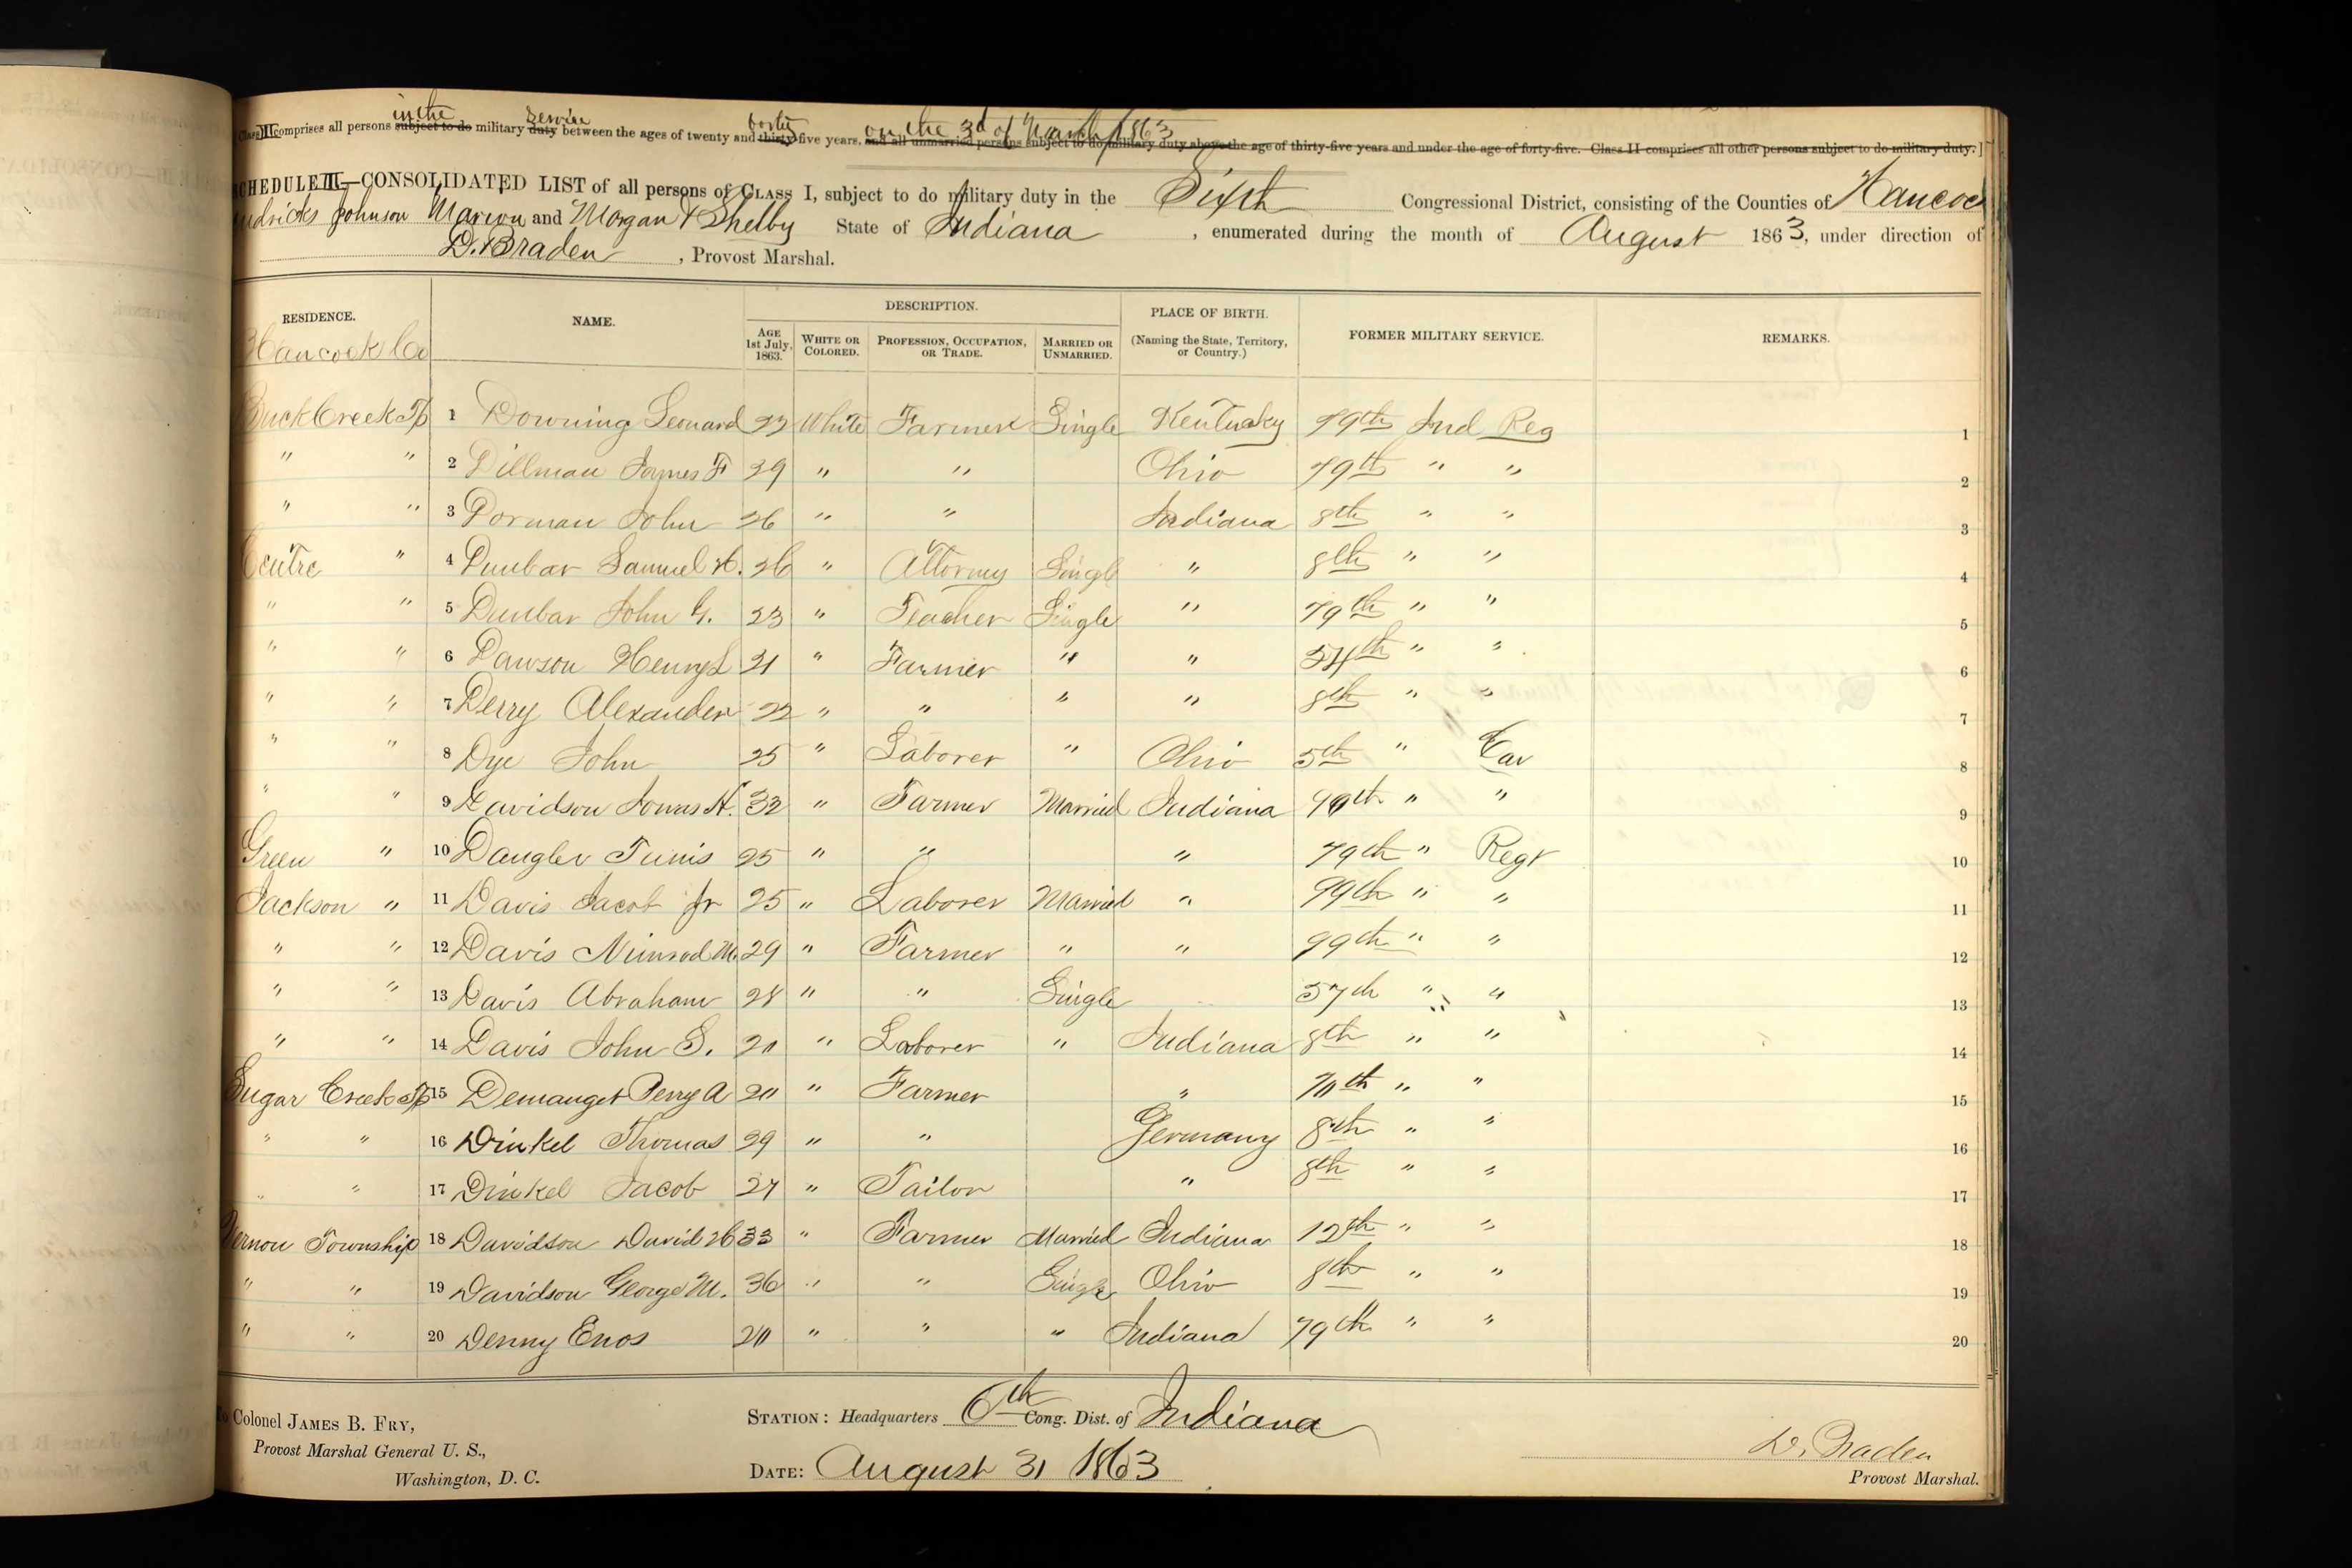 Class III comprises all persons subject to do in the military duty service between the ages of twenty and thirty forty five years, on the 3d of March 1863 and all unmarried persons subject to do military duty above the age of thirty-five years and under the age of forty-five. Class II comprises all other persons subject to do military duty.]
SCHEDULE III—CONSOLIDATED LIST of all persons of CLASS I, subject to do military duty in the Sixth Congressional District, consisting of the Counties of Hancoc
ndricks Johnson Marion and Morgan & Shelby State of Indiana, enumerated during the month of August 1863, under direction of
D. Braden, Provost Marshal.
RESIDENCE. NAME. DESCRIPTION. PLACE OF BIRTH. (Naming the State, Territory, or Country.) FORMER MILITARY SERVICE. REMARKS.
AGE 1st July, 1863. WHITE OR COLORED. PROFESSION, OCCUPATION, OR TRADE. MARRIED OR UNMARRIED.
Hancock Co
Buck Creek Tp 1 Downing Leonard 23 White Farmer Single Kentucky 79th Ind Reg 1
" " 2 Dillman James F 29 " " Ohio 79th " " 2
" " 3 Dorman John 26 " " Indiana 8th " " 3
Centre " 4 Dunbar Samuel A. 26 " Attorney Single " 8th " " 4
" " 5 Dunbar John G. 23 " Teacher Single " 79th " " 5
" " 6 Dawson Henry L 21 " Farmer " " 54th " " 6
" " 7 Derry Alexander 22 " " " " 8th " " 7
" " 8 Dye John 25 " Laborer " Ohio 5th " Cav 8
" " 9 Davidson Jonas H. 32 " Farmer Married Indiana 90th " " 9
Green " 10 Dangler Tunis 25 " " " 79th " Regt 10
Jackson " 11 Davis Jacob Jr 25 " Laborer Married " 99th " " 11
" " 12 Davis Nimrod M. 29 " Farmer " " 99th " " 12
" " 13 Davis Abraham 28 " " Single 57th " " 13
" " 14 Davis John S. 20 " Laborer " Indiana 8th " " 14
Sugar Creek Tp 15 Demanget Perry A 20 " Farmer " 70th " " 15
" " 16 Dinkel Thomas 29 " " Germany 8th " " 16
" " 17 Dinkel Jacob 27 " Tailor " 8th " " 17
Vernon Township 18 Davidson David H 33 " Farmer Married Indiana 12th " " 18
" " 19 Davidson George M. 36 " " Single Ohio 8th " " 19
" " 20 Denny Enos 20 " " " Indiana 79th " " 20
To Colonel JAMES B. FRY,
Provost Marshal General U. S.,
Washington, D. C.
STATION: Headquarters 6th Cong. Dist. of Indiana
DATE: August 31 1863
D. Braden
Provost Marshal.